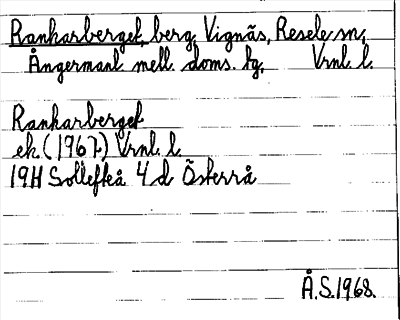 Rankarberget, berg, Vignäs, Resele sn,
Ångermanl. mell. doms. tg, Vrnl. l.
Rankarberget
ek. (1967) Vrnl. l.
19H Sollefteå 4 d Österrå
Å.S.1968.